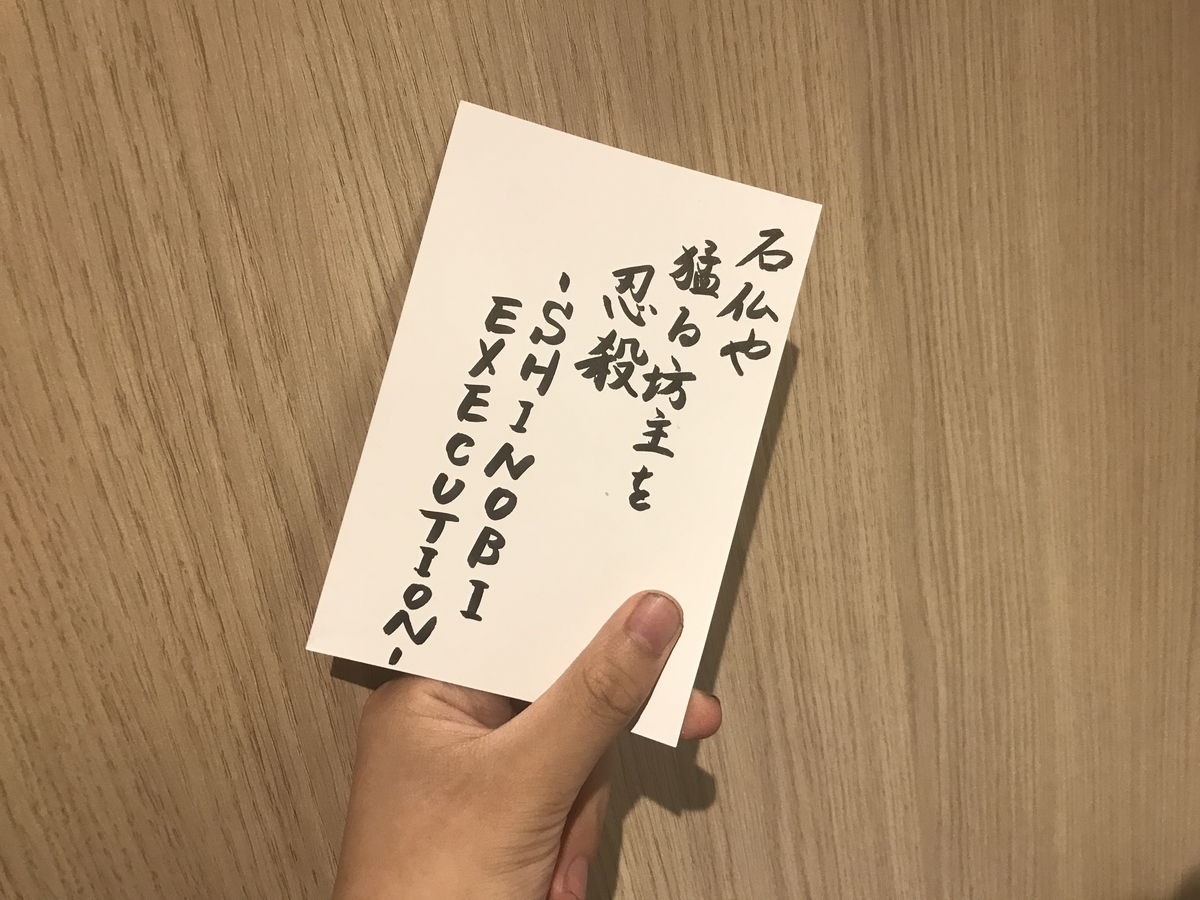 石仏や
猛る坊主を
忍殺
-SHINOBI
EXECUTION-